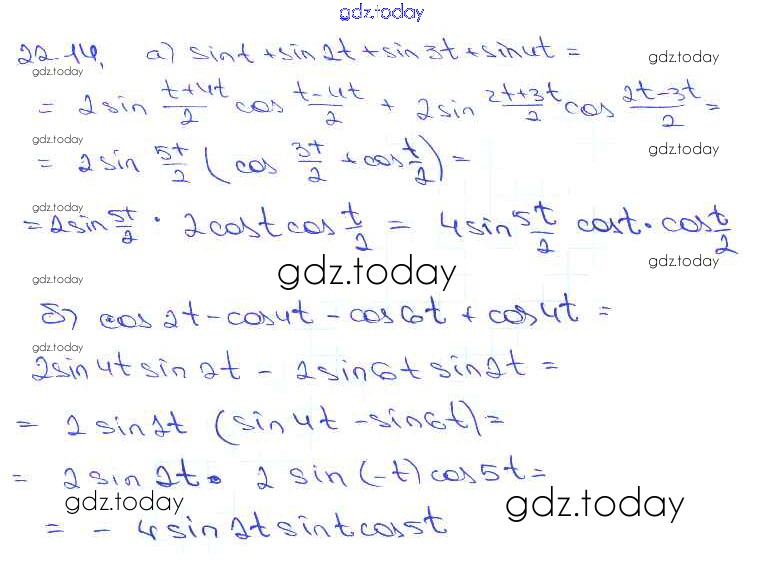 gdz.today
22.14. а) sint + sin2t + sin3t + sin4t =
gdz.today gdz.today
= 2sin (t+4t)/2 cos (t-4t)/2 + 2sin (2t+3t)/2 cos (2t-3t)/2 =
gdz.today gdz.today
= 2sin 5t/2 (cos 3t/2 + cos t/2) =
gdz.today
= 2sin 5t/2 · 2cost cos t/2 = 4sin 5t/2 cost · cos t/2
gdz.today gdz.today gdz.today
б) cos2t - cos4t - cos6t + cos4t =
gdz.today
2sin4t sin2t - 2sin6t sin2t =
= 2sin2t (sin4t - sin6t) =
= 2sin2t · 2sin(-t) cos5t =
gdz.today gdz.today
= - 4sin2t sint cos5t